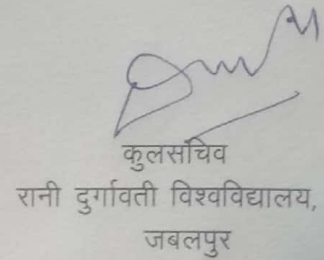 कुलसचिव
रानी दुर्गावती विश्वविद्यालय,
जबलपुर